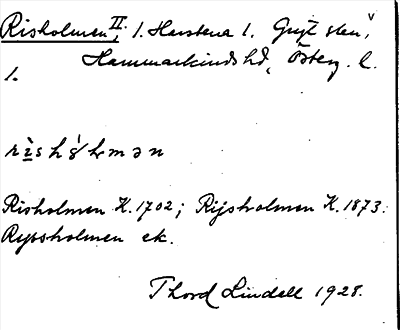 Risholmen II, 1. Harstena 1. Gryt sn,
Hammarkinds hd, Österg. l.
1.
rìshǿlmən
Risholmen K. 1702; Rijsholmen K. 1873.
Rysholmen ek.
Thord Lindell 1928.